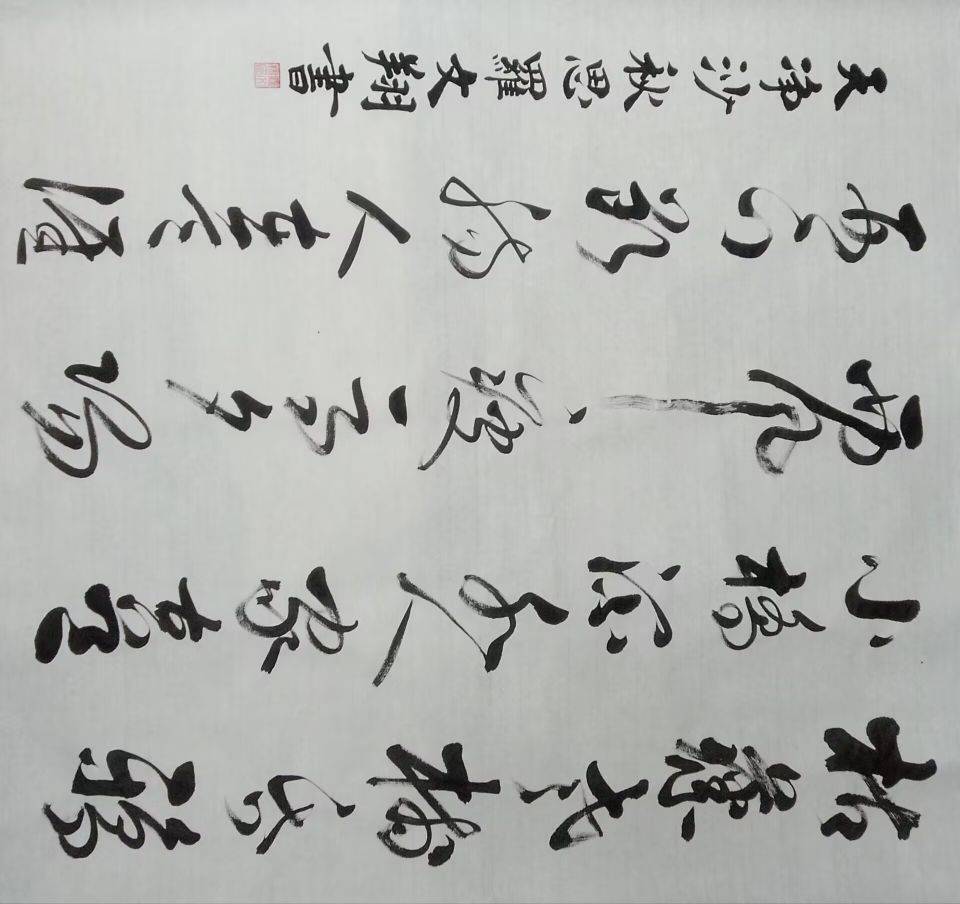 枯藤老樹昏鴉
小橋流水人家古道
西風瘦馬夕陽
西下斷腸人在天涯
天淨沙秋思羅文翔書